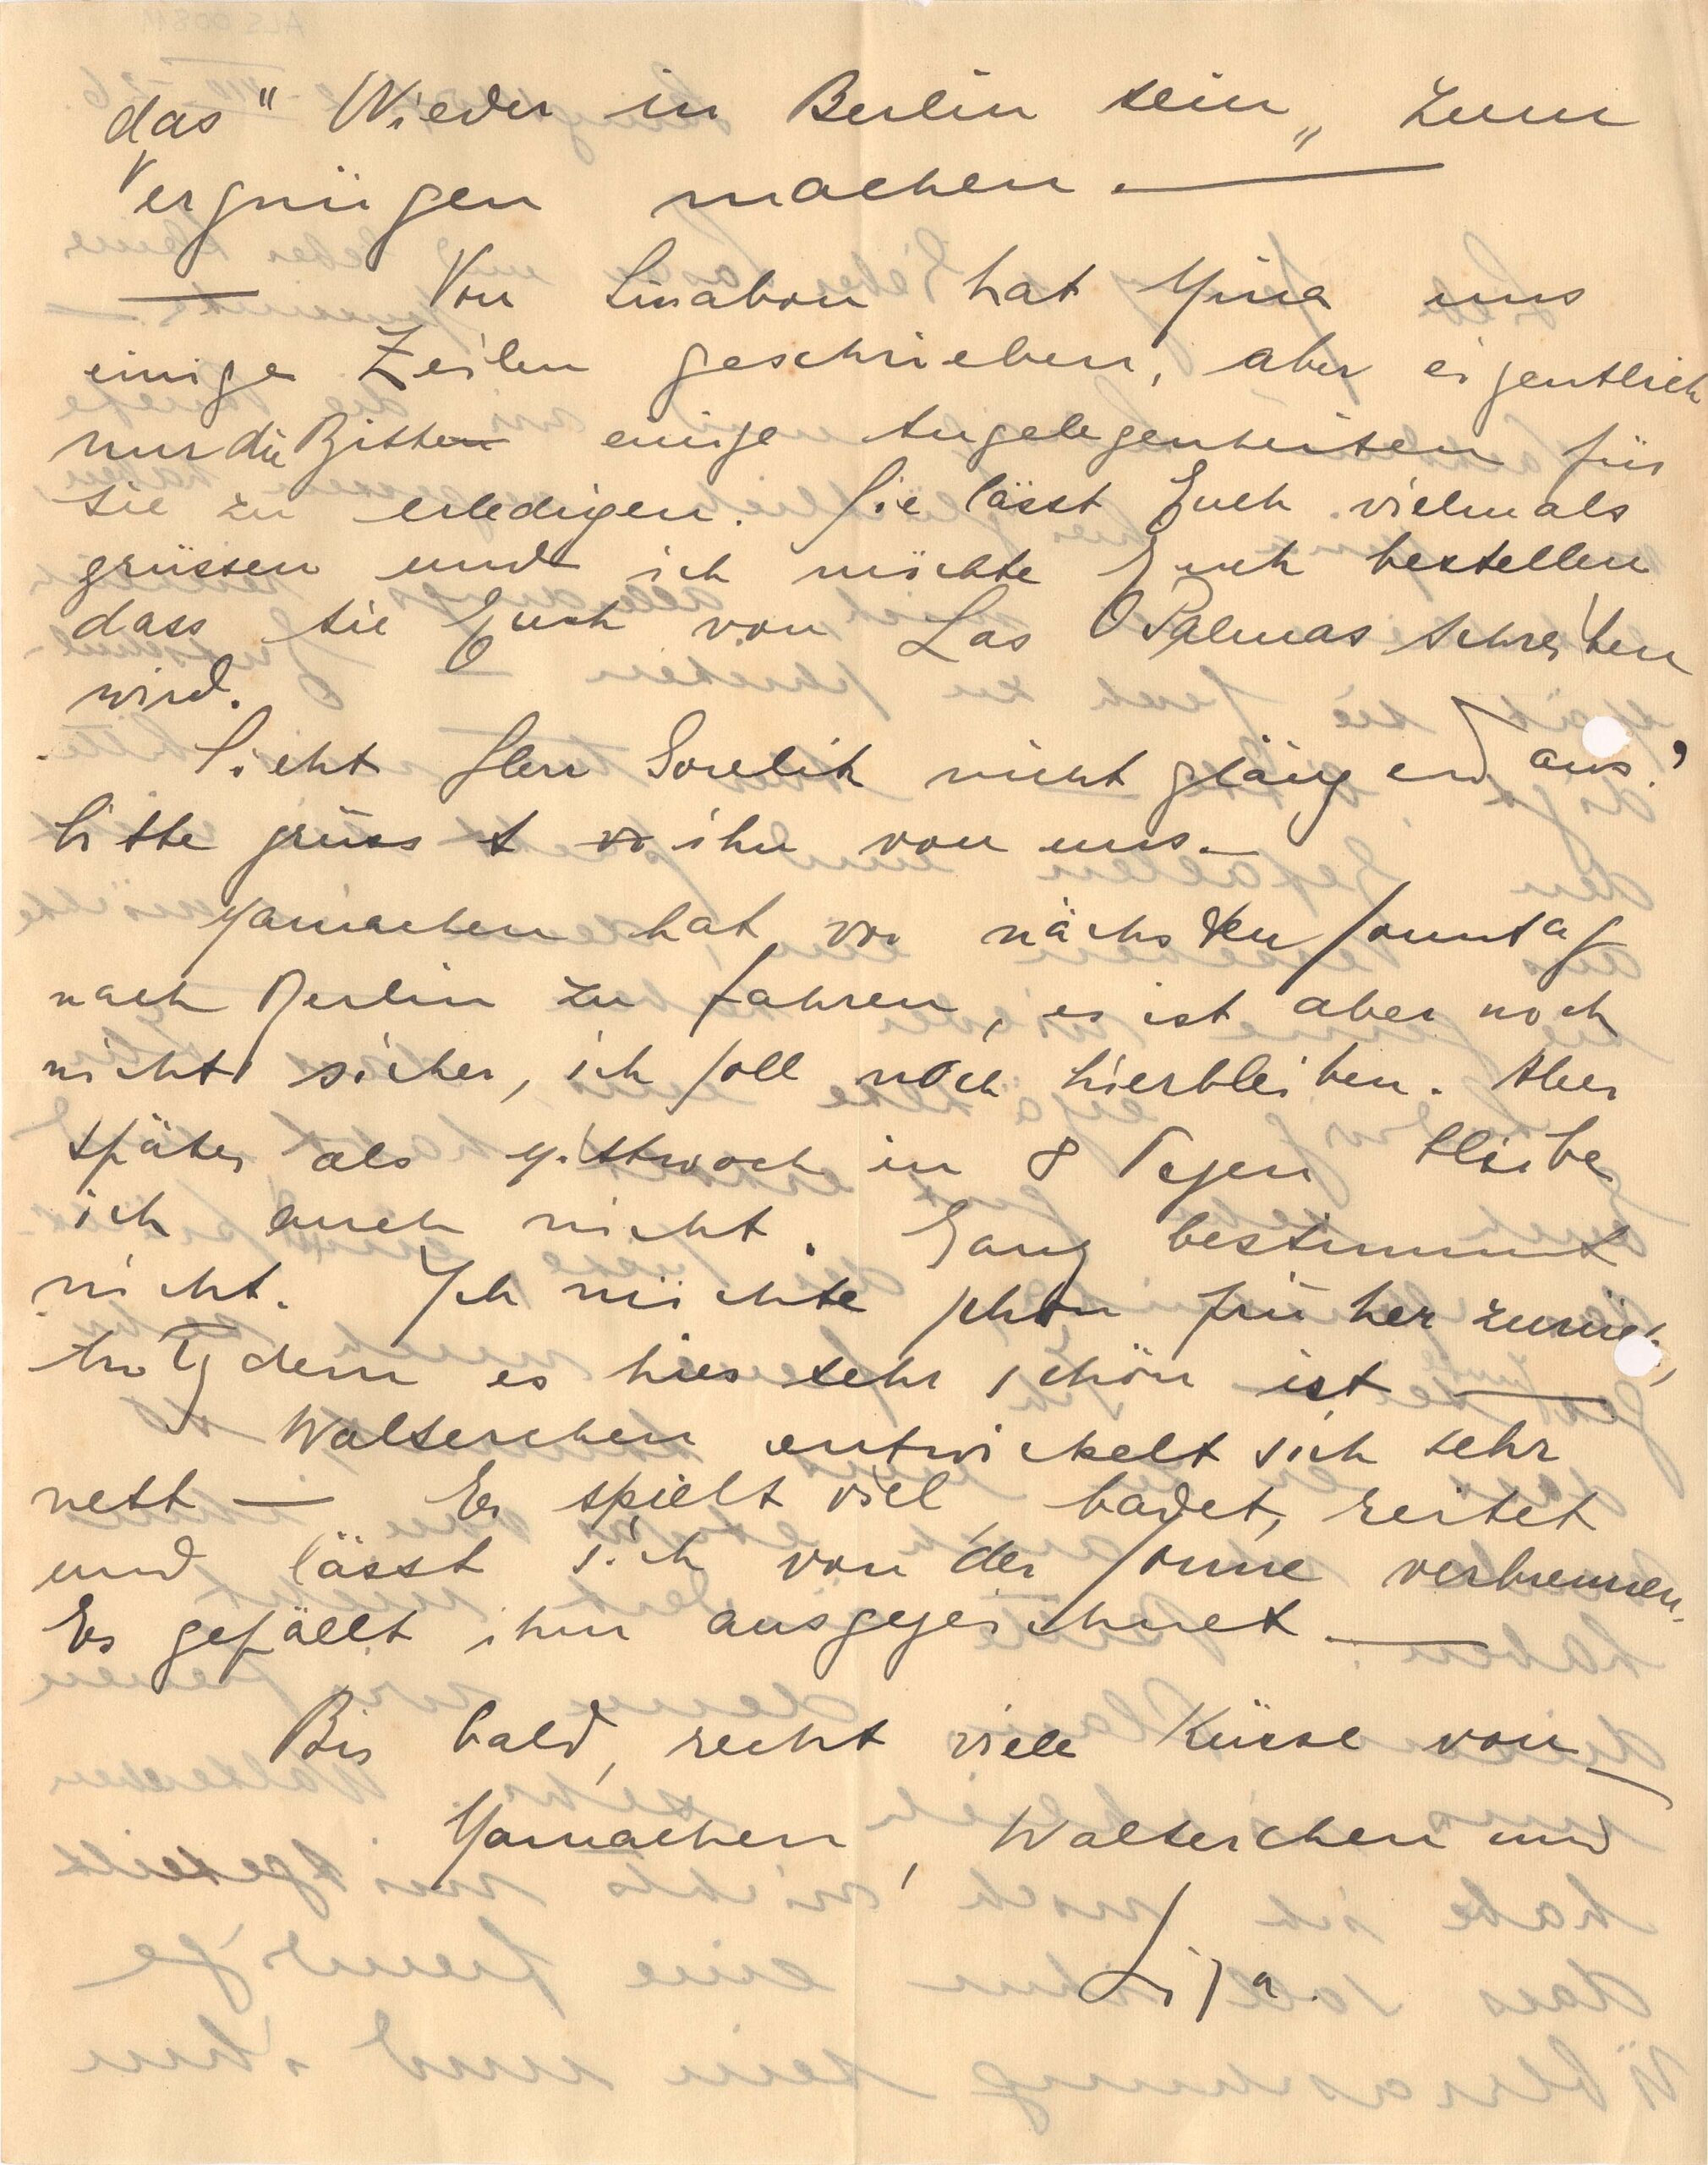 das "Wieder in Berlin sein„ zum
Vergnügen machen. —
— Von Lissabon hat Mina uns
einige Zeilen geschrieben, aber eigentlich
nur die Bitte einige Angelegenheiten für
sie zu erledigen. Sie lässt Euch vielmals
grüssen und ich möchte Euch bestellen
dass sie Euch von Las Palmas schreiben
wird.
Sieht Herr nicht glänzend aus?
bitte grüsst ihn von uns. —
Mamachen hat vor nächsten Sonntag
nach Berlin zu fahren, es ist aber noch
nicht sicher, ich soll noch hierbleiben. Aber
später als Mittwoch in 8 Tagen bleibe
ich auch nicht. Ganz bestimmt
nicht. Ich möchte schon früher zurück,
trotzdem es hier sehr schön ist —
Walterchen entwickelt sich sehr
nett — Er spielt viel, badet, reitet
und lässt sich von der Sonne verbrennen.
Es gefällt ihm ausgezeichnet. —
Bis bald, recht viele Küsse von
Mamachen, Walterchen und
Lisa.